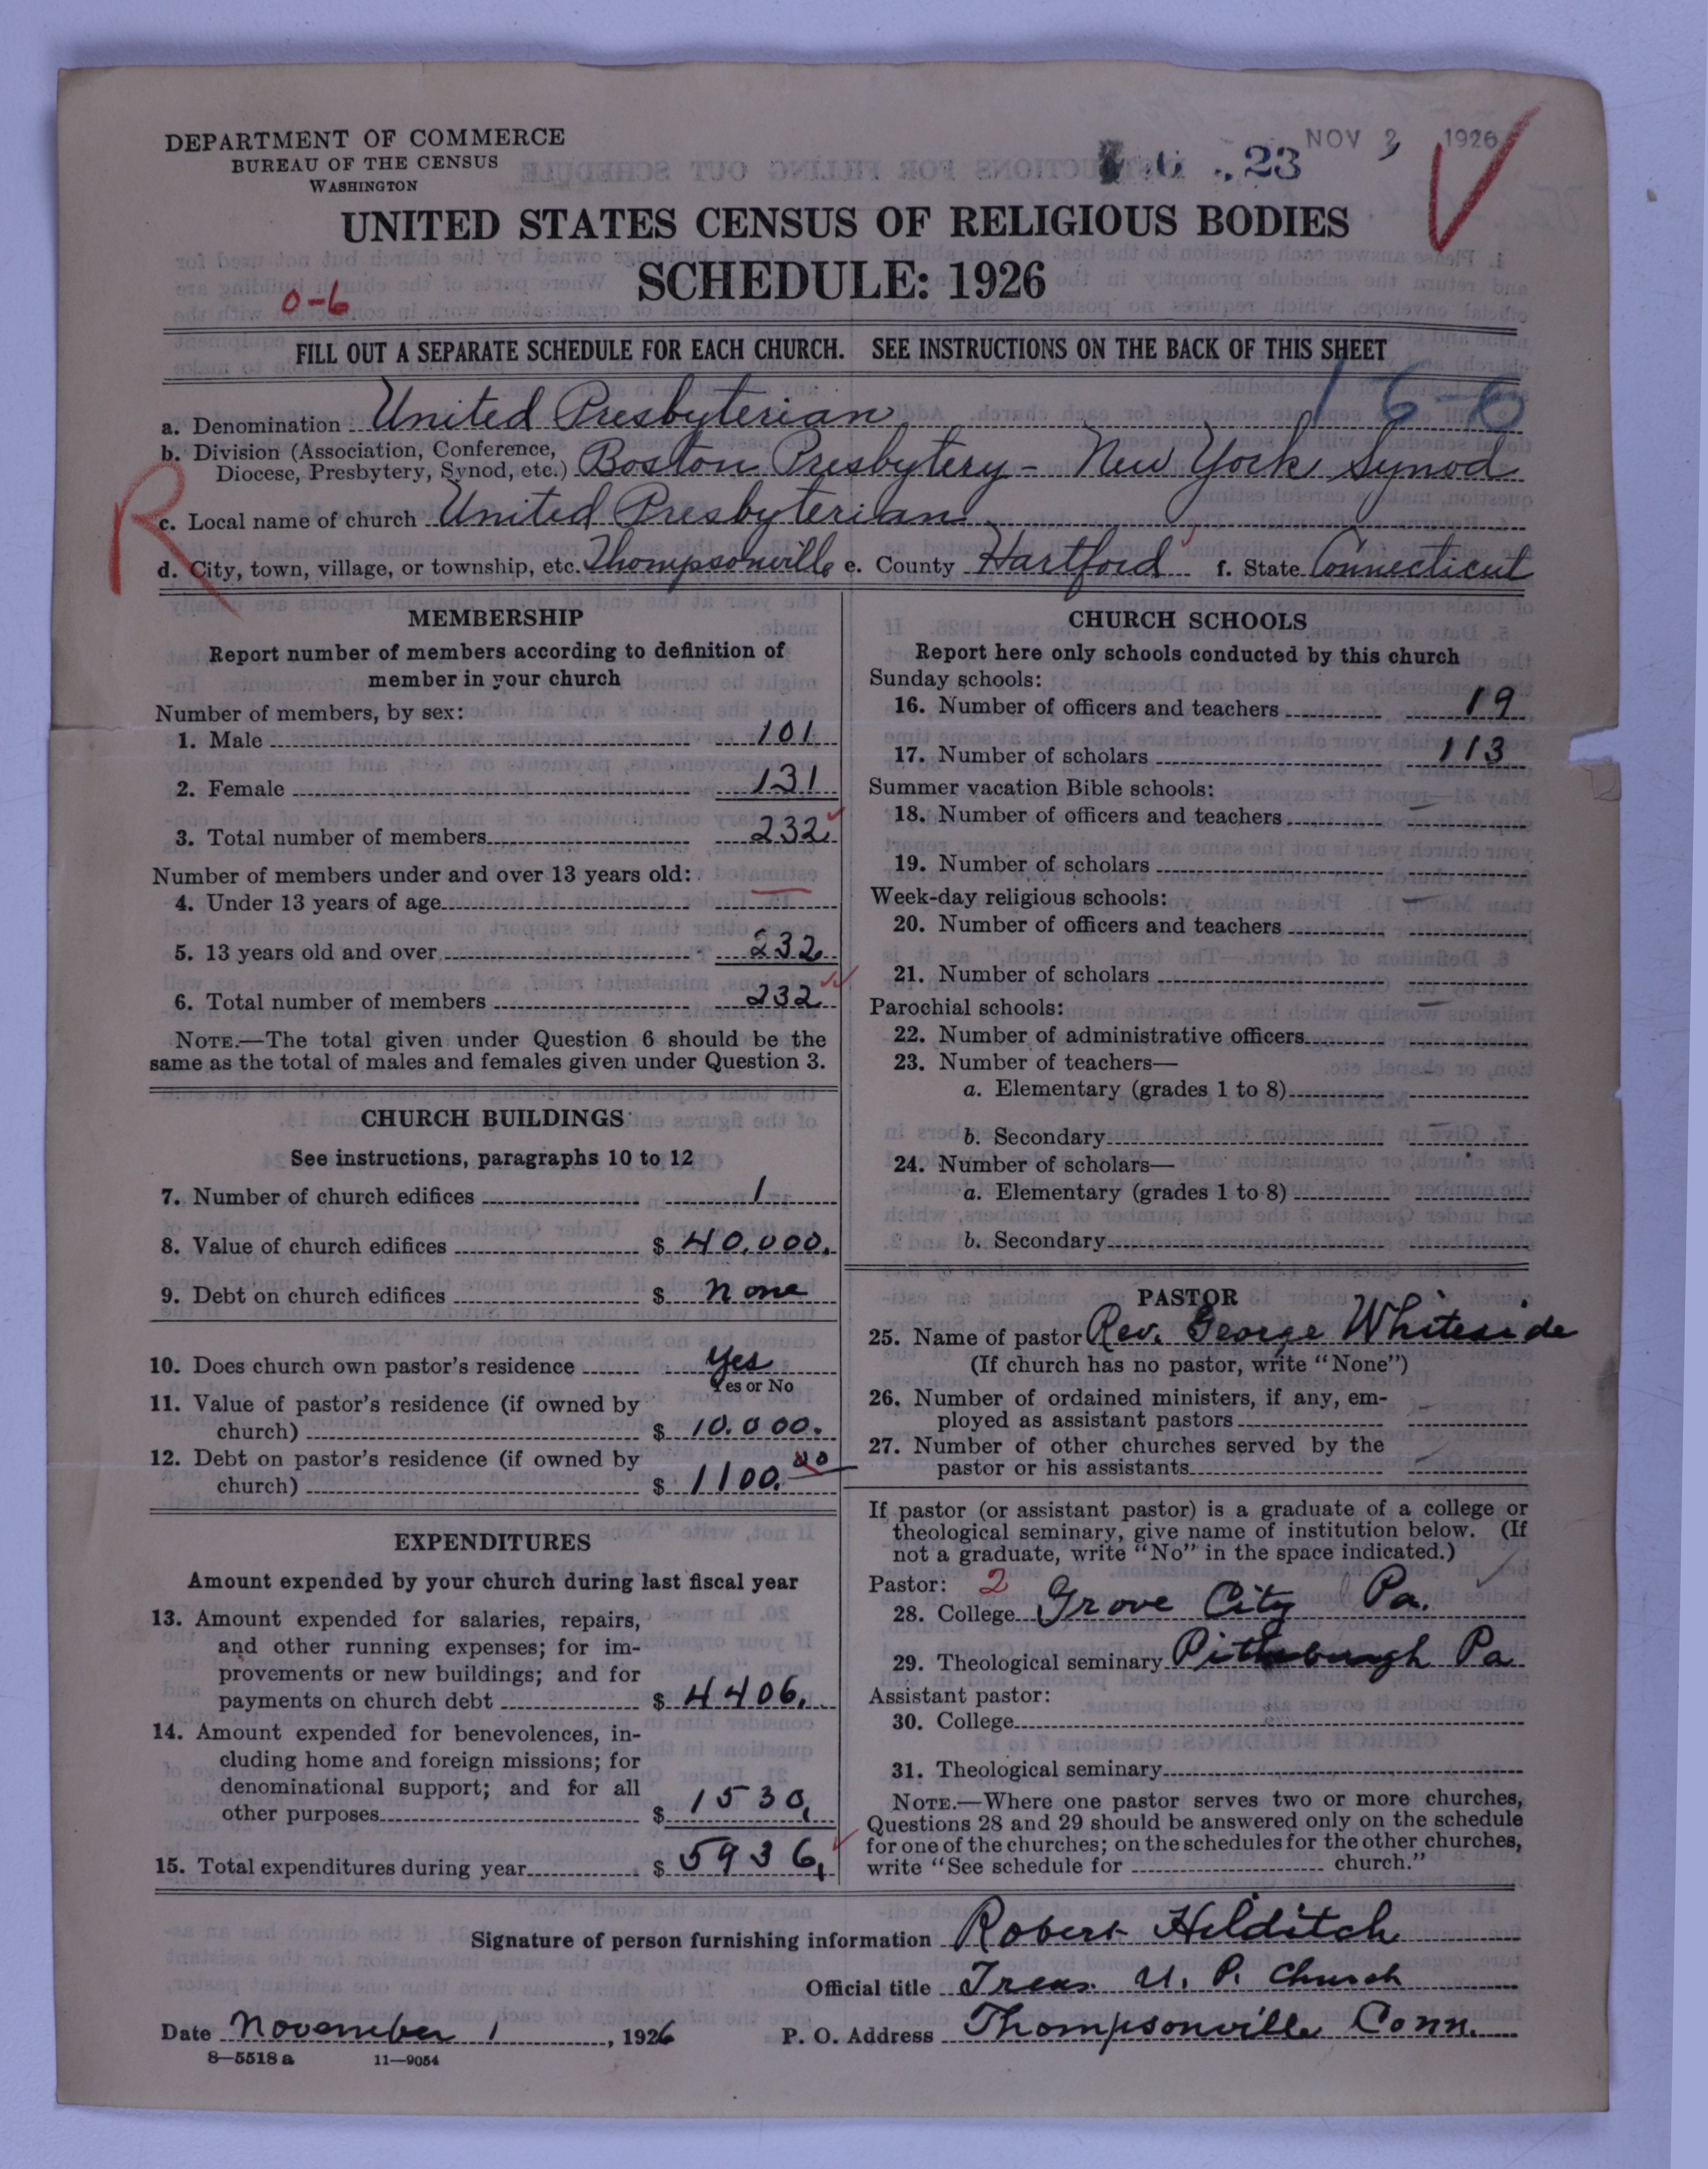 DEPARTMENT OF COMMERCE
BUREAU OF THE CENSUS
WASHINGTON
23
NOV 3 1926
UNITED STATES CENSUS OF RELIGIOUS BODIES
SCHEDULE: 1926
0-6
FILL OUT A SEPARATE SCHEDULE FOR EACH CHURCH. SEE INSTRUCTIONS ON THE BACK OF THIS SHEET
16-6
a. Denomination United Presbyterian
b. Division (Association, Conference,
Diocese, Presbytery, Synod, etc.) Boston Presbytery - New York Synod
R
c. Local name of church United Presbyterian
d. City, town, village, or township, etc. Thompsonville e. County Hartford f. State Connecticut
MEMBERSHIP
Report number of members according to definition of
member in your church
Number of members, by sex:
1. Male 101
2. Female 131
3. Total number of members 232
Number of members under and over 13 years old:
4. Under 13 years of age —
5. 13 years old and over 232
6. Total number of members 232
NOTE.—The total given under Question 6 should be the
same as the total of males and females given under Question 3.
CHURCH BUILDINGS
See instructions, paragraphs 10 to 12
7. Number of church edifices 1
8. Value of church edifices $ 40,000.
9. Debt on church edifices $ none
10. Does church own pastor's residence yes
Yes or No
11. Value of pastor's residence (if owned by
church) $ 10.000.
12. Debt on pastor's residence (if owned by
church) $ 1100.00
EXPENDITURES
Amount expended by your church during last fiscal year
13. Amount expended for salaries, repairs,
and other running expenses; for im-
provements or new buildings; and for
payments on church debt $ 4406.
14. Amount expended for benevolences, in-
cluding home and foreign missions; for
denominational support; and for all
other purposes $ 1530,
15. Total expenditures during year $ 5936,
CHURCH SCHOOLS
Report here only schools conducted by this church
Sunday schools:
16. Number of officers and teachers 19
17. Number of scholars 113
Summer vacation Bible schools:
18. Number of officers and teachers —
19. Number of scholars
Week-day religious schools: —
20. Number of officers and teachers
21. Number of scholars
Parochial schools: —
22. Number of administrative officers
23. Number of teachers—
a. Elementary (grades 1 to 8)
b. Secondary —
24. Number of scholars—
a. Elementary (grades 1 to 8)
b. Secondary
PASTOR
25. Name of pastor Rev. George Whiteside
(If church has no pastor, write "None")
26. Number of ordained ministers, if any, em-
ployed as assistant pastors —
27. Number of other churches served by the
pastor or his assistants —
If pastor (or assistant pastor) is a graduate of a college or
theological seminary, give name of institution below. (If
not a graduate, write "No" in the space indicated.)
Pastor: 2
28. College Grove City Pa.
29. Theological seminary Pittsburgh Pa
Assistant pastor:
30. College
31. Theological seminary
NOTE.—Where one pastor serves two or more churches,
Questions 28 and 29 should be answered only on the schedule
for one of the churches; on the schedules for the other churches,
write "See schedule for church."
Signature of person furnishing information Robert Hilditch
Official title Treas. U. P. Church
Date November 1, 1926 P. O. Address Thompsonville Conn.
8—5518 a 11—9054